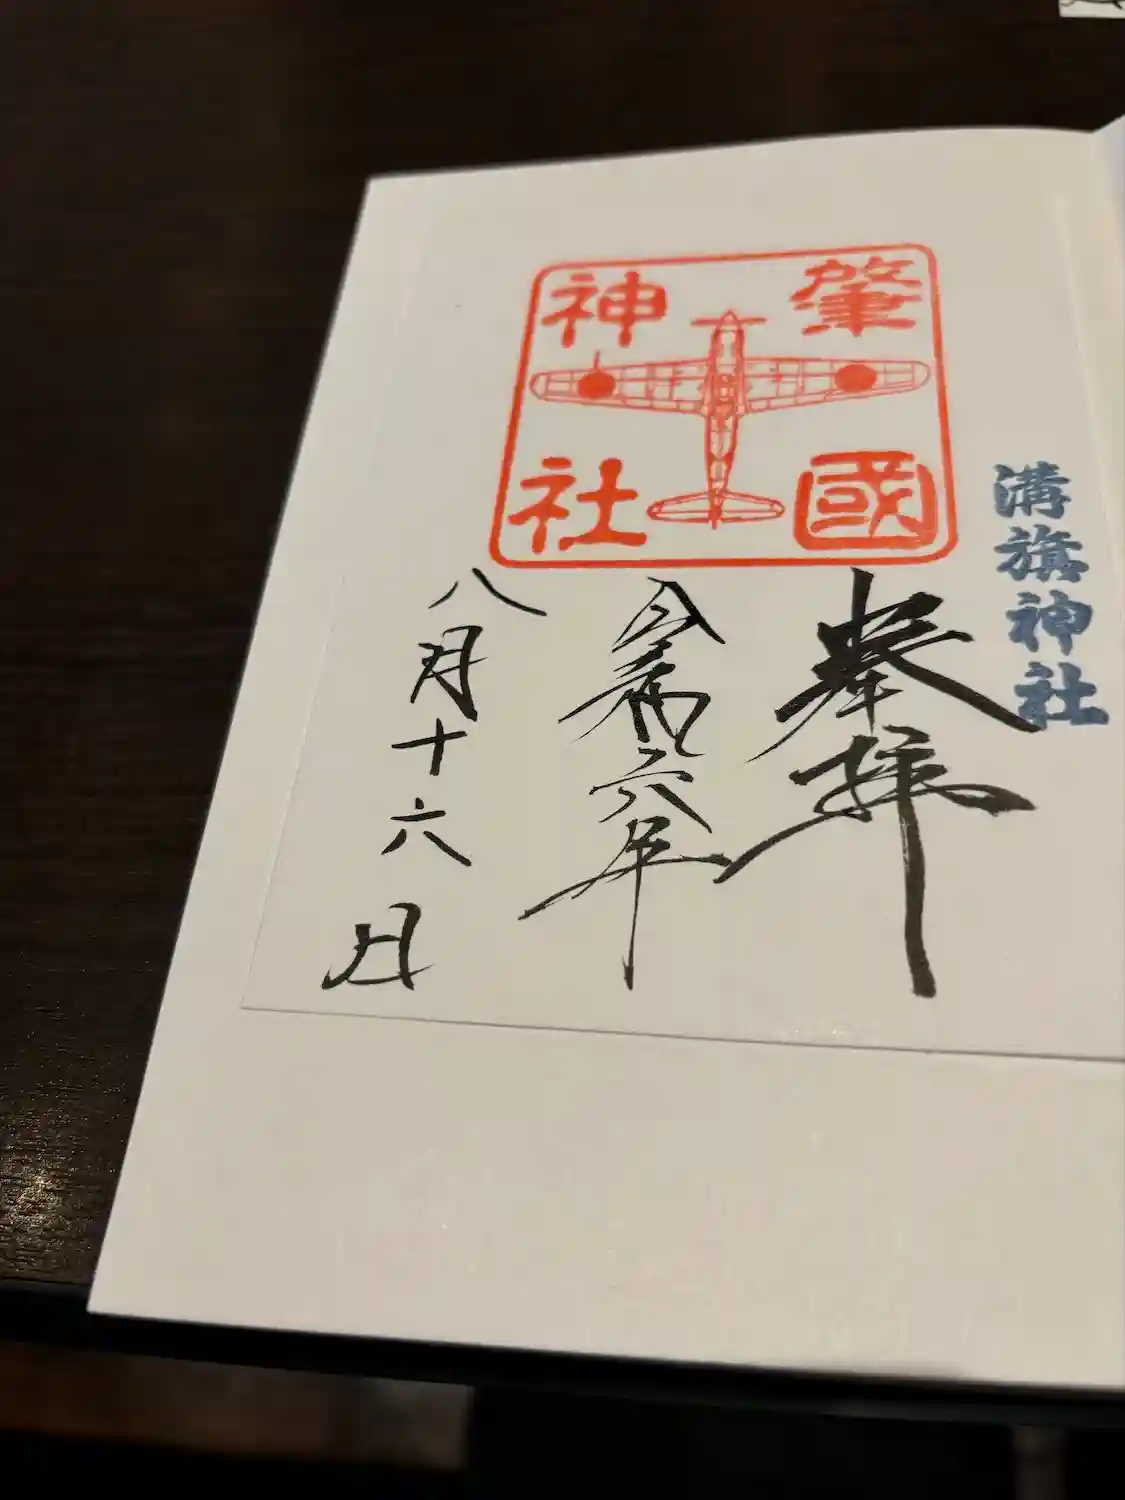 溝旗神社
肇國
神社
奉拝
令和六年
八月十六日